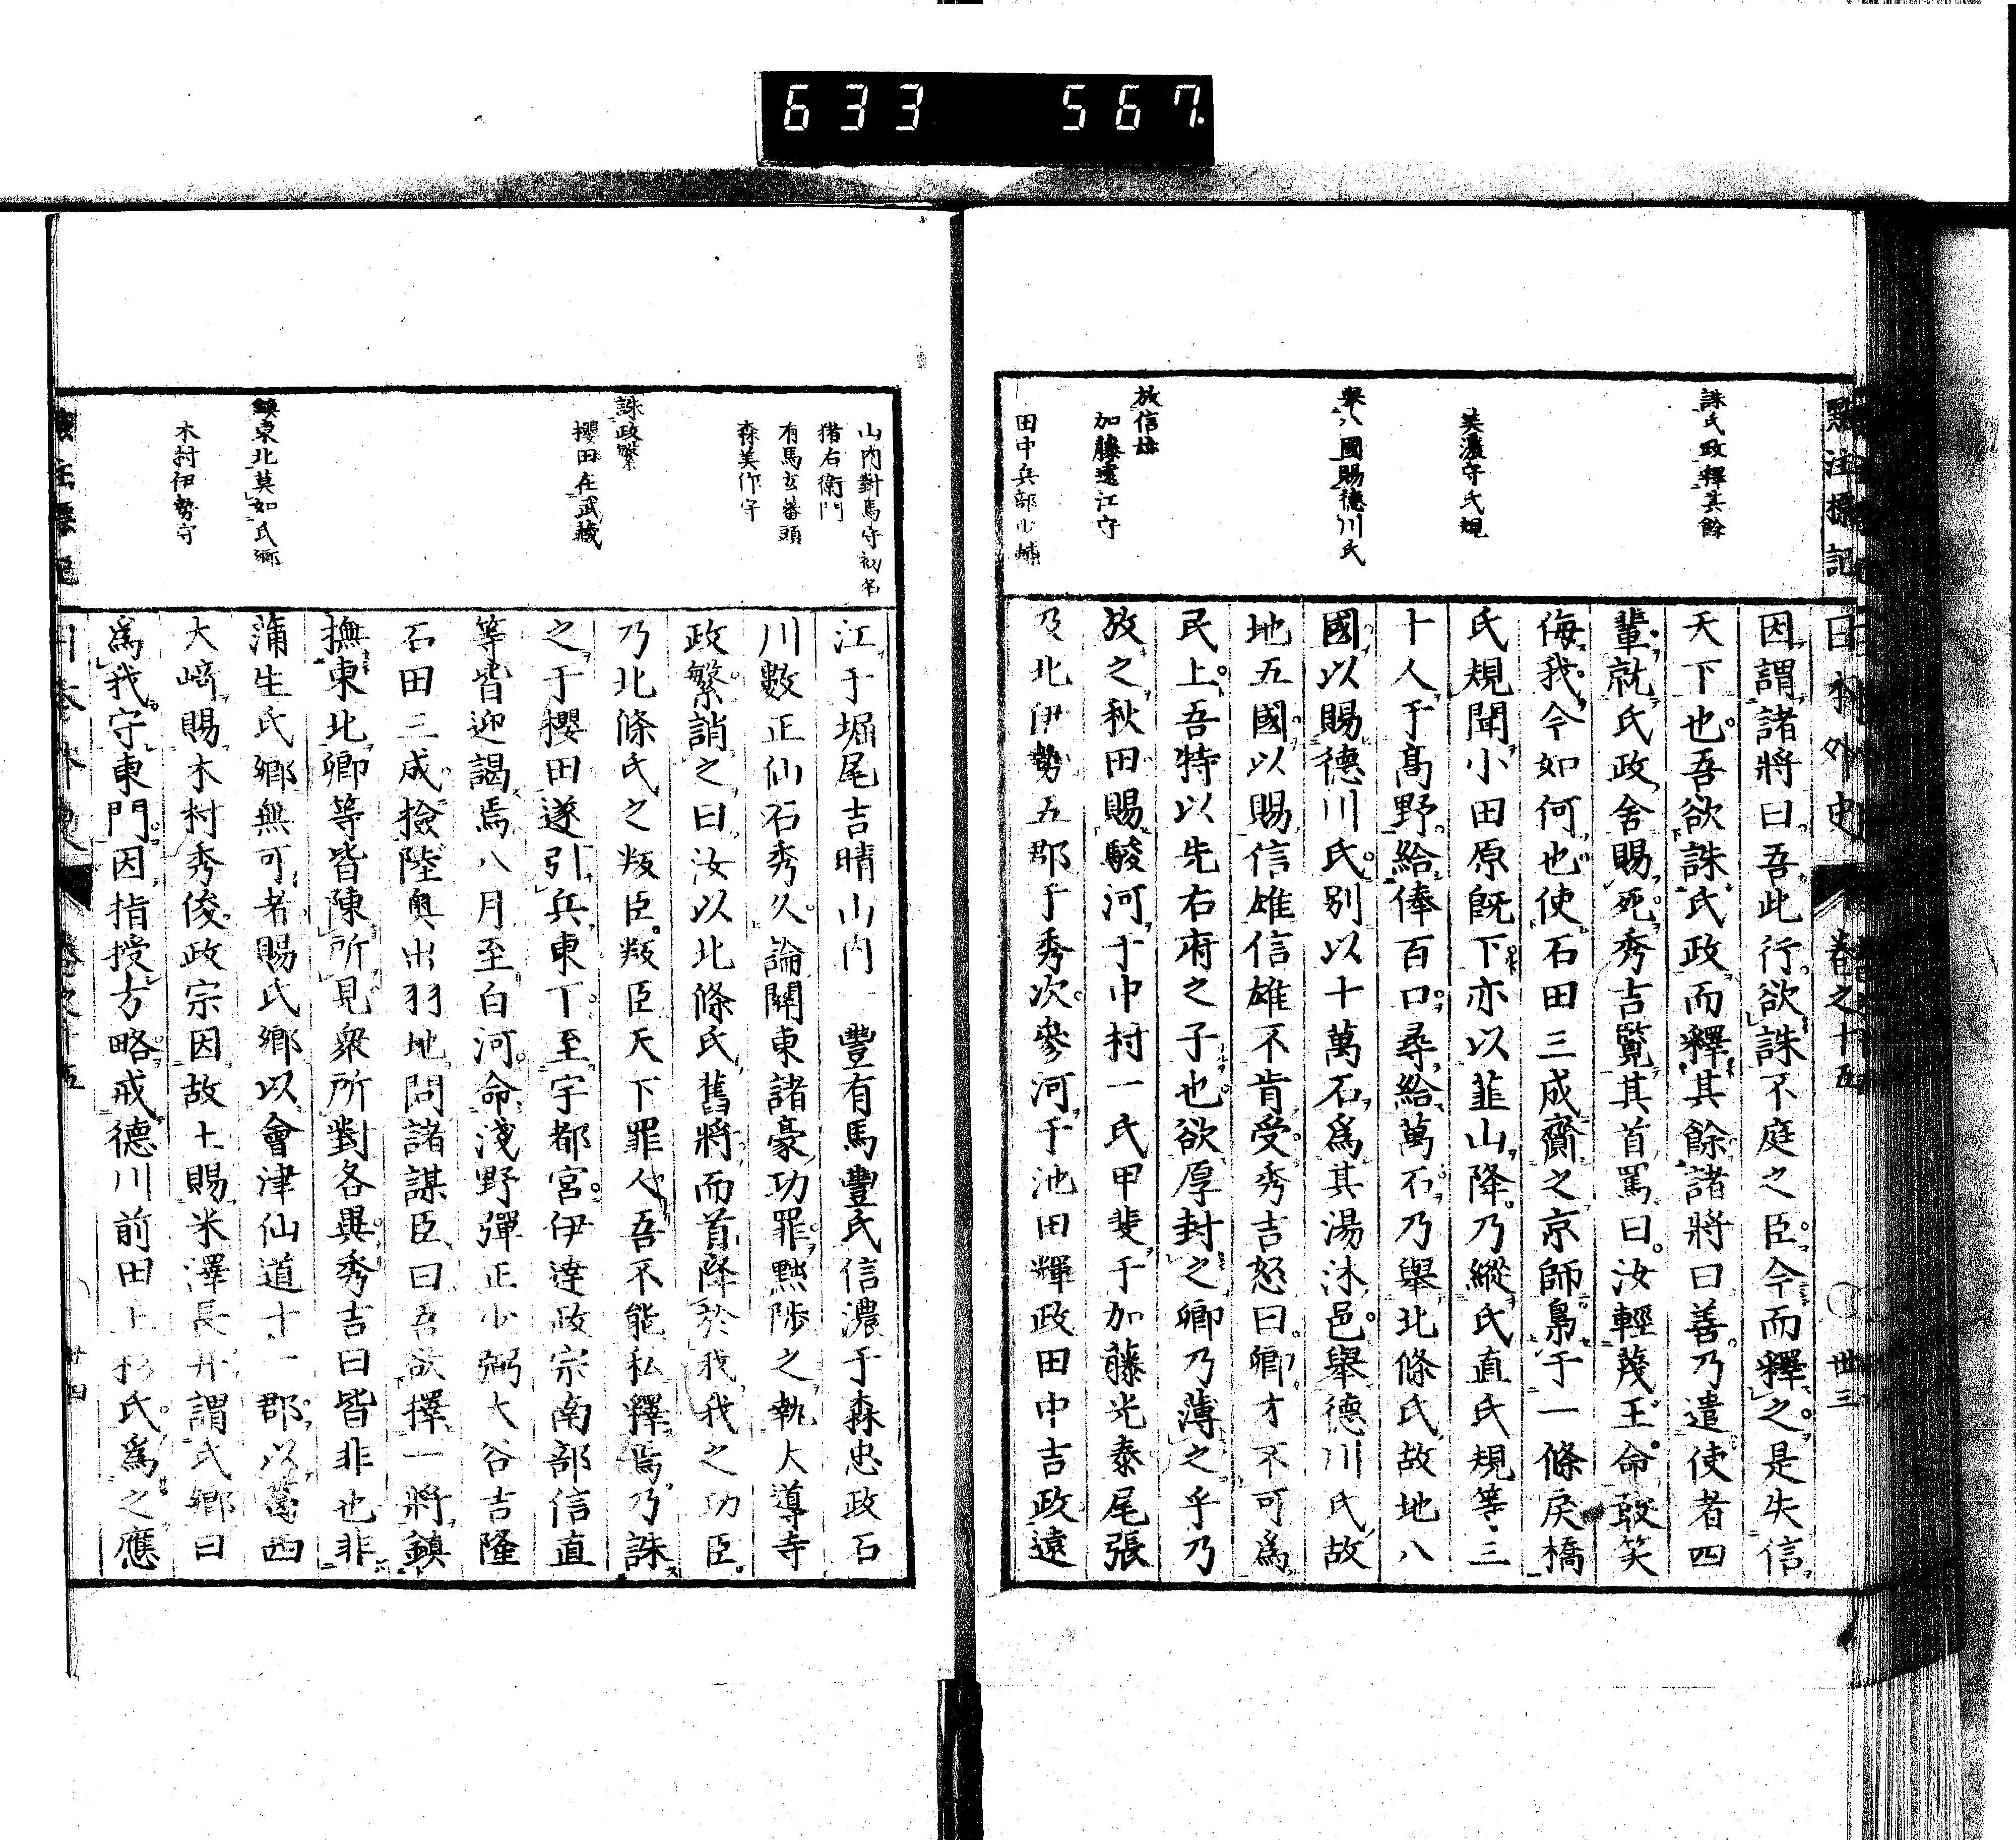 633 567.
點注標記 日本外史 卷之十五 〇 丗三
誅氏政釋其餘
美濃守氏規
舉八國賜德川氏
放信雄
加藤遠江守
田中兵部少輔
因謂諸將曰吾此行欲誅不庭之臣今而釋之是失信
天下也吾欲誅氏政而釋其餘諸將曰善乃遣使者四
輩就氏政舍賜死秀吉覽其首罵曰汝輕蔑王命敢笑
侮我今如何也使石田三成齎之京師梟于一條戾橋
氏規聞小田原既下亦以韮山降乃縱氏直氏規等三
十人于高野給俸百口尋給萬石乃舉北條氏故地八
國以賜德川氏別以十萬石爲其湯沐邑舉德川氏故
地五國以賜信雄信雄不肯受秀吉怒曰卿才不可爲
民上吾特以先右府之子也欲厚封之卿乃薄之乎乃
放之秋田賜駿河于中村一氏甲斐于加藤光泰尾張
及北伊勢五郡于秀次參河于池田輝政田中吉政遠
山内對馬守初名
猪右衛門
有馬玄蕃頭
森美作守
誅政繁
櫻田在武藏
鎭東北莫如氏鄉
木村伊勢守
江于堀尾吉晴山内一豐有馬豐氏信濃于森忠政石
川數正仙石秀久論關東諸豪功罪黜陟之執大導寺
政繁誚之曰汝以北條氏舊將而首降於我我之功臣
乃北條氏之叛臣叛臣天下罪人吾不能私釋焉乃誅
之于櫻田遂引兵東下至宇都宮伊達政宗南部信直
等皆迎謁焉八月至白河命淺野彈正少弼大谷吉隆
石田三成撿陸奧出羽地問諸謀臣曰吾欲擇一將鎭
撫東北卿等皆陳所見衆所對各異秀吉曰皆非也非
蒲生氏鄉無可者賜氏鄉以會津仙道十一郡以葛西
大﨑賜木村秀俊政宗因故土賜米澤長井謂氏鄉曰
爲我守東門因指授方略戒德川前田上杉氏爲之應